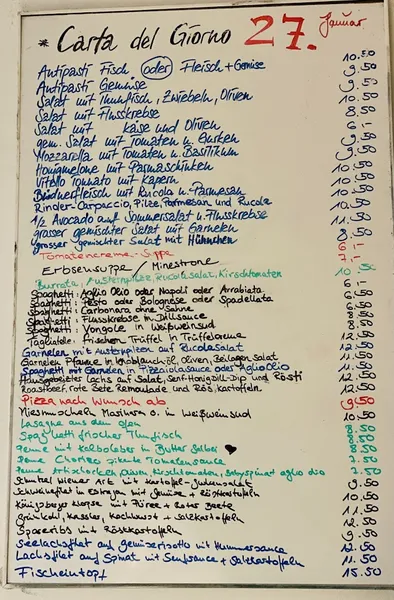 * Carta del Giorno 27. Januar
Antipasti Fisch oder Fleisch + Gemüse 10.50
Antipasti Gemüse 9.50
Salat mit Thunfisch, Zwiebeln, Oliven
Salat mit Flusskrebse
Salat mit Käse und Oliven
gem. Salat mit Tomaten u. Gurken
Mozzarella mit Tomaten u. Basilikum
Honigmelone mit Parmaschinken
Vitello Tonnato mit Kapern
Bündnerfleisch mit Rucola u. Parmesan
Rinder-Carpaccio, Pilze, Parmesan und Rucola
1/2 Avocado auf Sommersalat u. Flusskrebse
grosser gemischter Salat mit Garnelen
grosser gemischter Salat mit Hühnchen
Tomatencreme-Suppe 6.-
Erbsensuppe / Minestrone 7.-
Burrata, Austernpilze, Rucolasalat, Kirschtomaten 10.50
Spaghetti: Aglio Olio oder Napoli oder Arrabiata
Spaghetti: Pesto oder Bolognese oder
Spaghetti: Carbonara ohne Sahne
Spaghetti: Flusskrebse in Dillsauce
Spaghetti: Vongole in Weißweinsud
Tagliatelle: Frischen Trüffel in Trüffelcreme
Garnelen mit Austernpilzen auf Rucolasalat
Garnelen Pfanne in Knoblauchöl, Oliven, Beilagen Salat
Spaghetti mit Garnelen in Pizzaiolasauce oder Aglio Olio
Hausgebeizter Lachs auf Salat, Senf-Honig-Dill-Dip und Rösti
Roastbeef, rote Bete Remoulade und Kartoffeln
Pizza nach Wunsch ab 9.50
Miesmuscheln Marinara o. in Weißweinsud 10.50
Lasagne aus dem Ofen 8.50
Spaghetti frischer Thunfisch 8.50
Penne mit Kalbsleber in Butter Salbei 8.50
Penne Chorizo pikante Tomatensauce 7.50
Penne Artischocken, Kirschtomaten, Babyspinat aglio olio 7.50
Schnitzel Wiener Art mit Kartoffel-Gurkensalat 9.50
mit Gemüse + Röstkartoffeln
Königsberger Klopse mit Püree + Roter Beete
Grünkohl, Kassler, Kochwurst + Salzkartoffeln
Spareribs mit Röstkartoffeln 9.50
Seelachsfilet auf Gemüserisotto mit Hummersauce 12.50
Lachsfilet auf Spinat mit Senfsauce + Salzkartoffeln 11.50
Fischeintopf 15.50